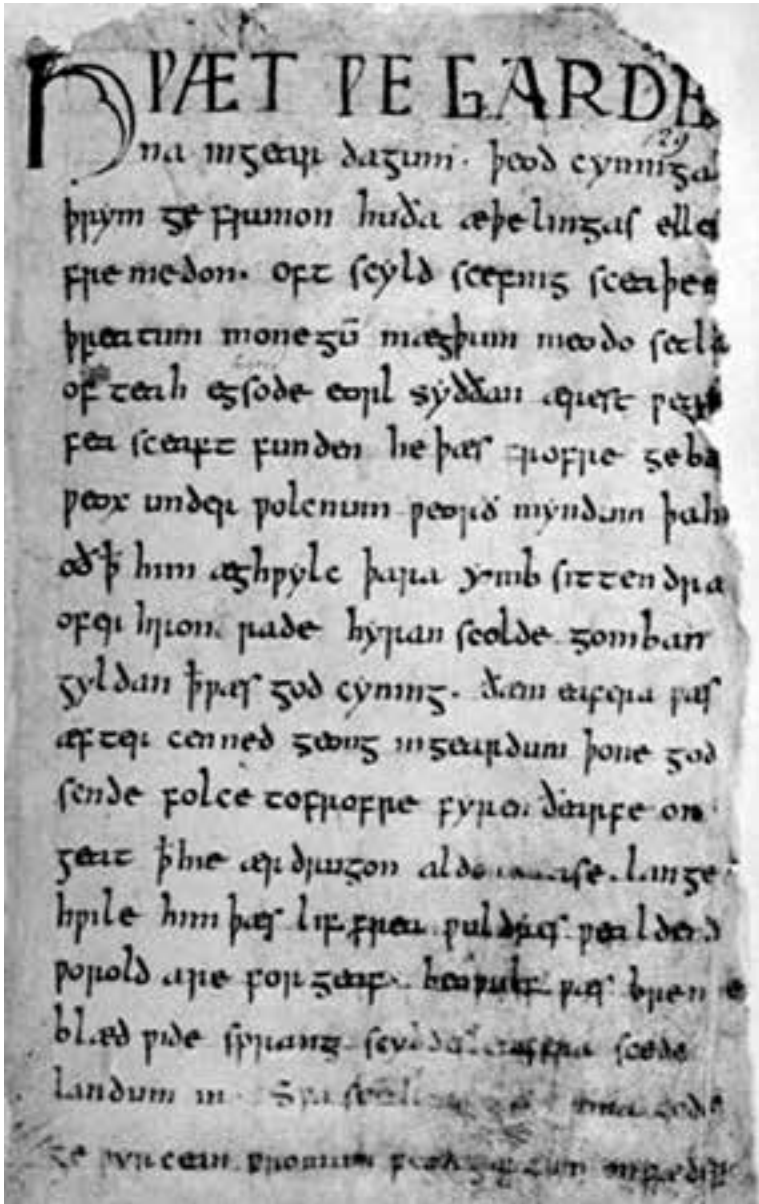 HǷÆT ǷE GARDE
129
na ingear dagum. þeod cyninga
þrym ge frunon huða æþelingas elle
fremedon. oft scyld scefing sceaþe
þreatum monegū mægþum meodo setla
of teah egsode eorl syððan ærest ƿear
fea sceaft funden he þæs frofre geba
ƿeox under ƿolcnum ƿeorð myndum þah
oðꝥ him æghƿylc þara ymb sittendra
ofer hron rade hyran scolde gomban
gyldan ꝥƿæs god cyning. ðæm eafera ƿæs
æfter cenned geong ingeardum þone god
sende folce tofrofre fyren ðearfe on
geat ꝥhie ær drugon aldor ase. lange
hƿile him þæs lif frea ƿuldres ƿealdend
ƿorold are for geaf. beoƿulf ƿæs breme
blæd ƿide sprang scyldes eafera scede
landum in. Sƿa sceal ma gode
ge ƿyrcean fromum feoh giftum